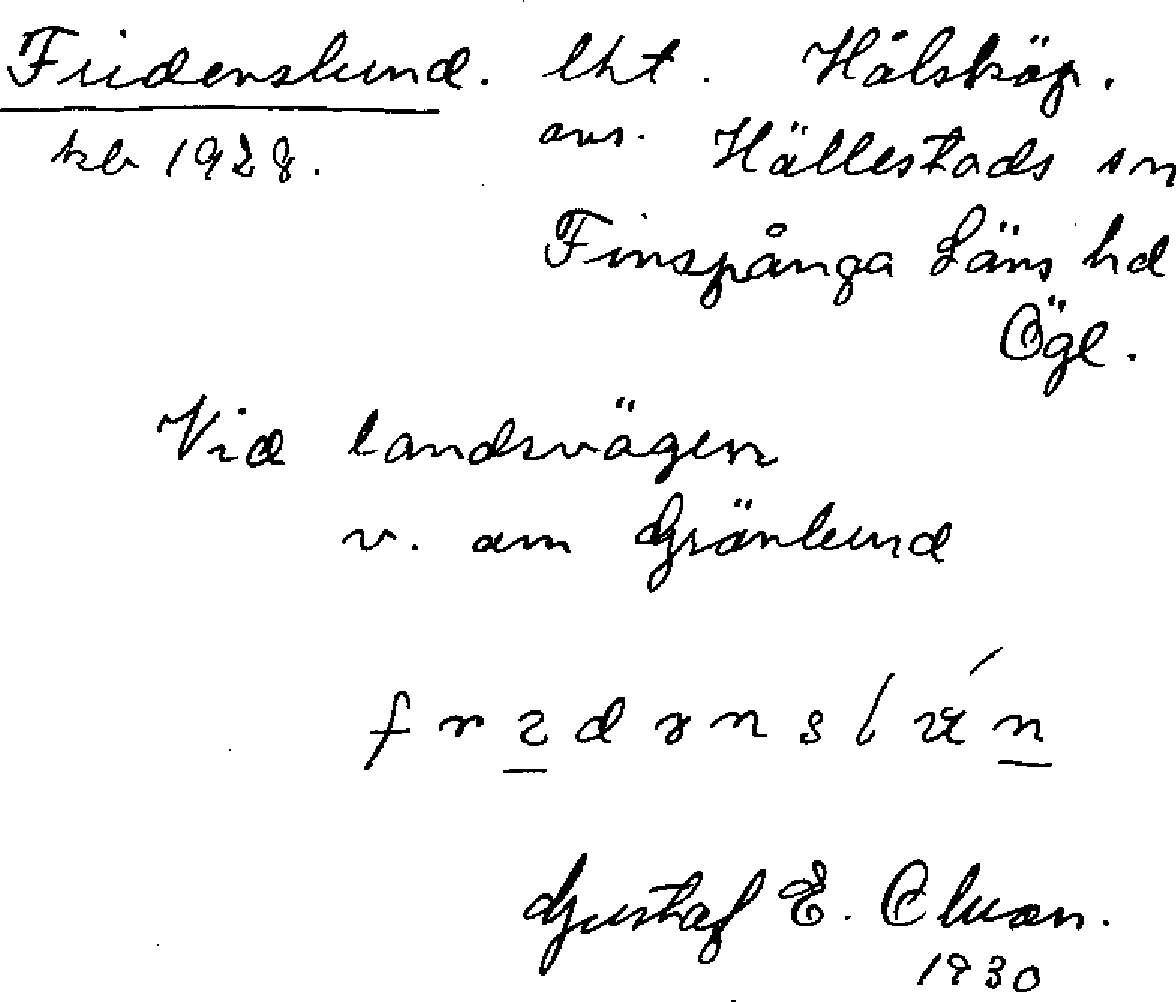 Fridenslund. lht. Hålsköp.
kb 1928. ans. Hällestads sn
Finspånga Läns hd
Ögl.
Vid landsvägen
v. om Grönlund
Gustaf E.
1930